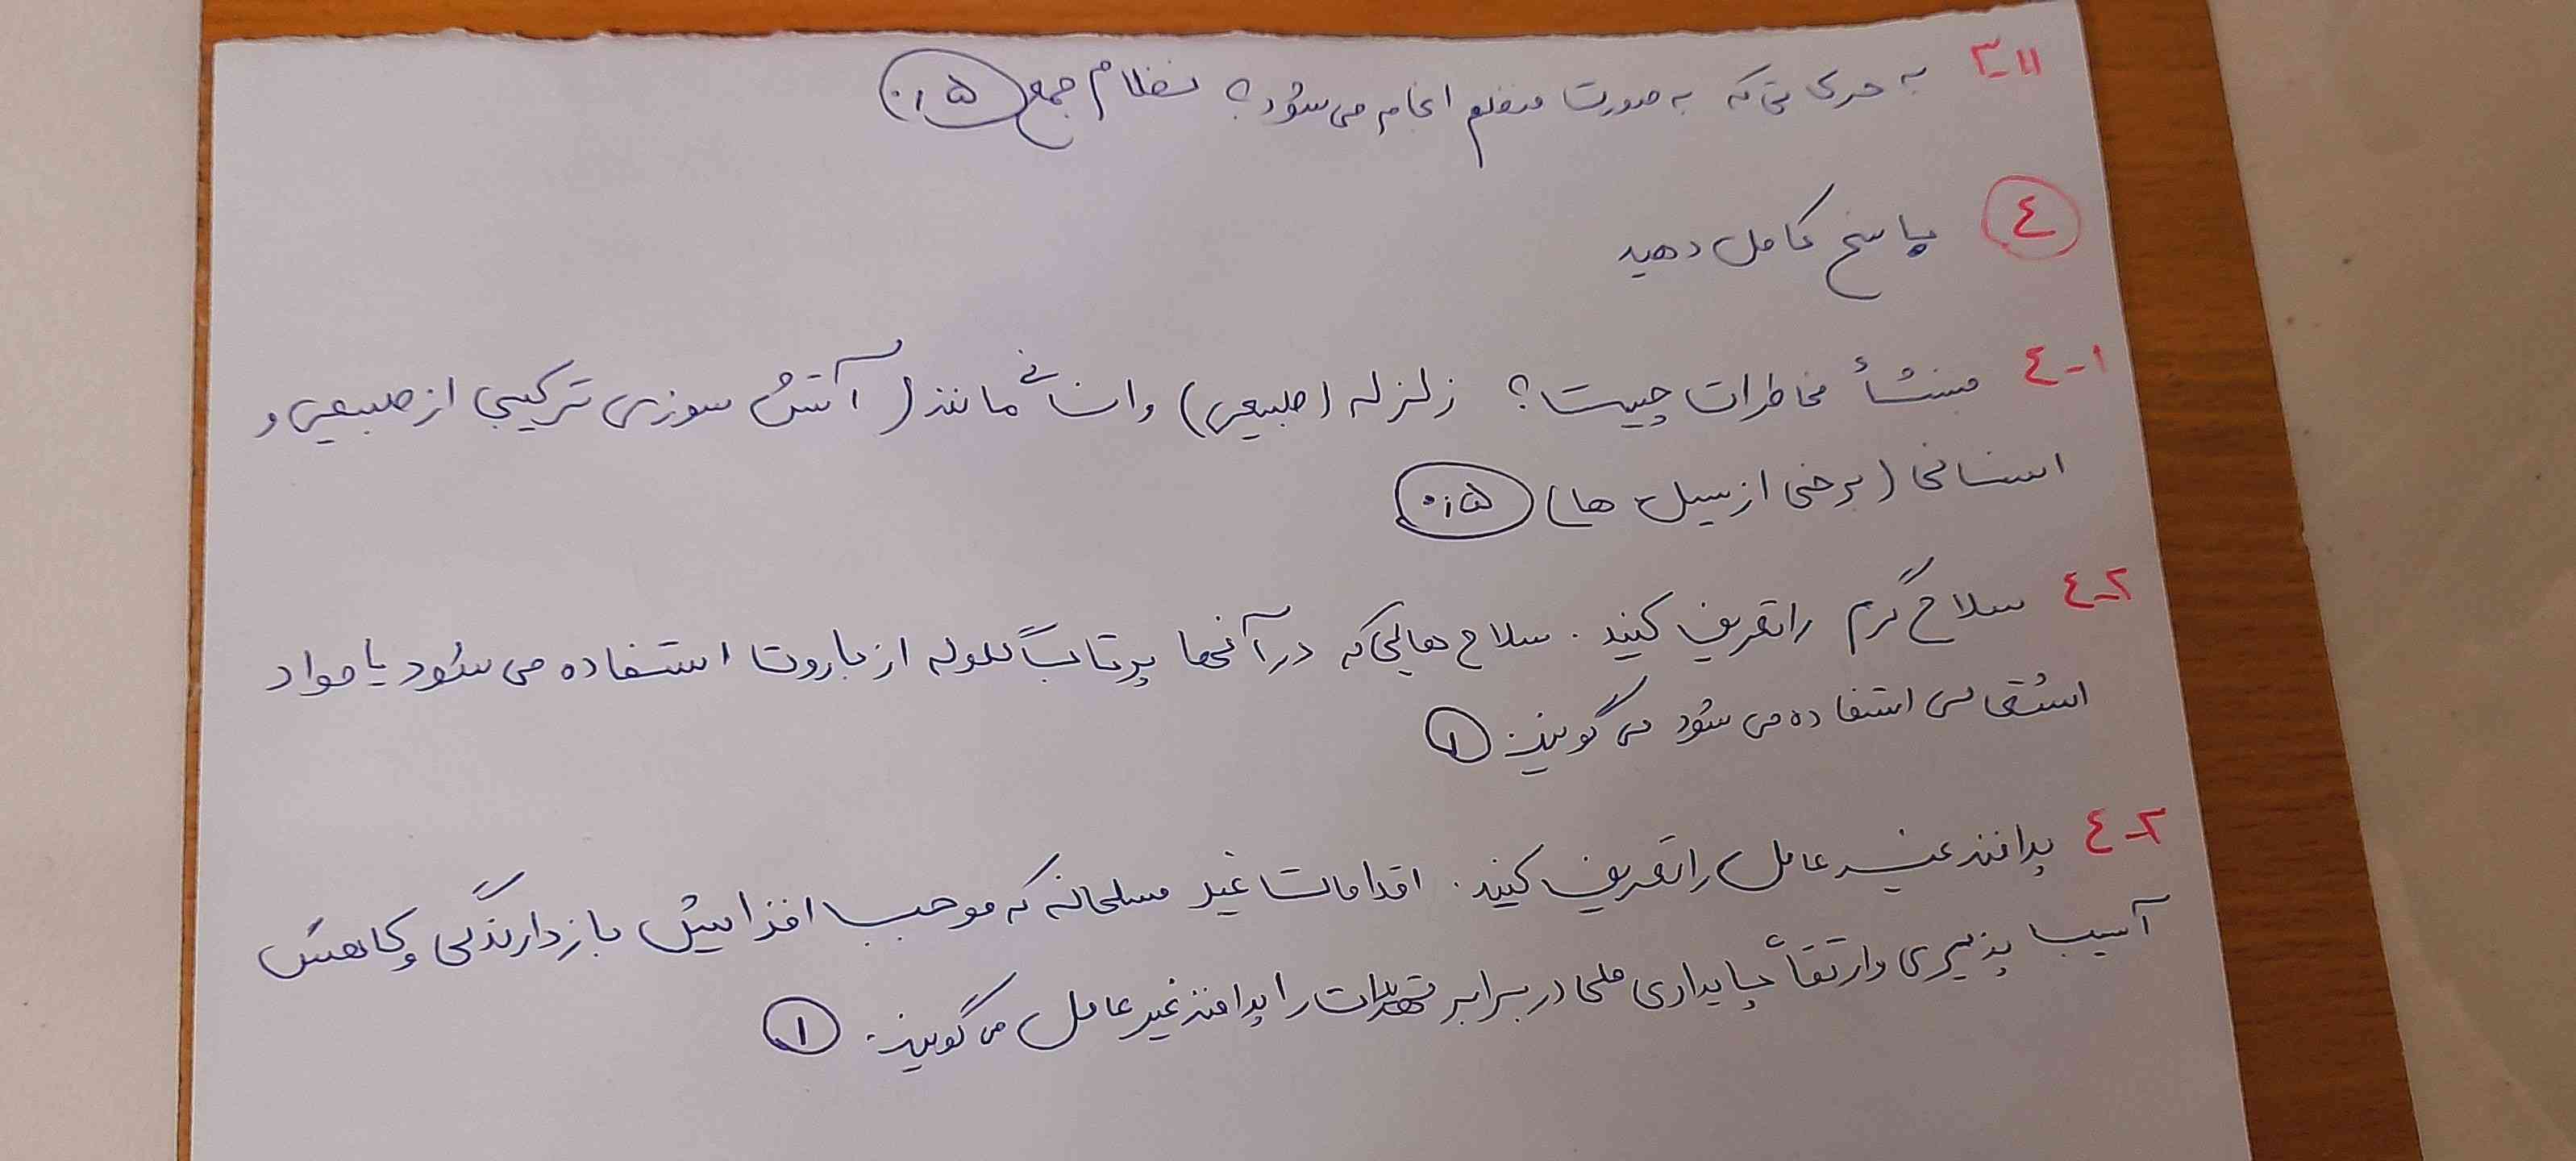 ۳-۱۱ به حرکاتی که به صورت منظم انجام می‌شود؟ نظام جمع ۰/۵
۴ پاسخ کامل دهید
۴-۱ منشأ مخاطرات چیست؟ زلزله (طبیعی) و انسانی مانند (آتش سوزی ترکیبی از طبیعی و
انسانی (برخی از سیل ها) ۰/۵
۴-۲ سلاح گرم را تعریف کنید. سلاح هایی که در آنها پرتاب گلوله از باروت استفاده می شود یا مواد
اشتعالی استفاده می شود می گویند. ۱
۴-۲ پدافند غیر عامل را تعریف کنید. اقدامات غیر مسلحانه که موجب افزایش بازدارندگی و کاهش
آسیب پذیری و ارتقأ پایداری ملی در برابر تهدیدات را پدافند غیر عامل می گویند. ۱